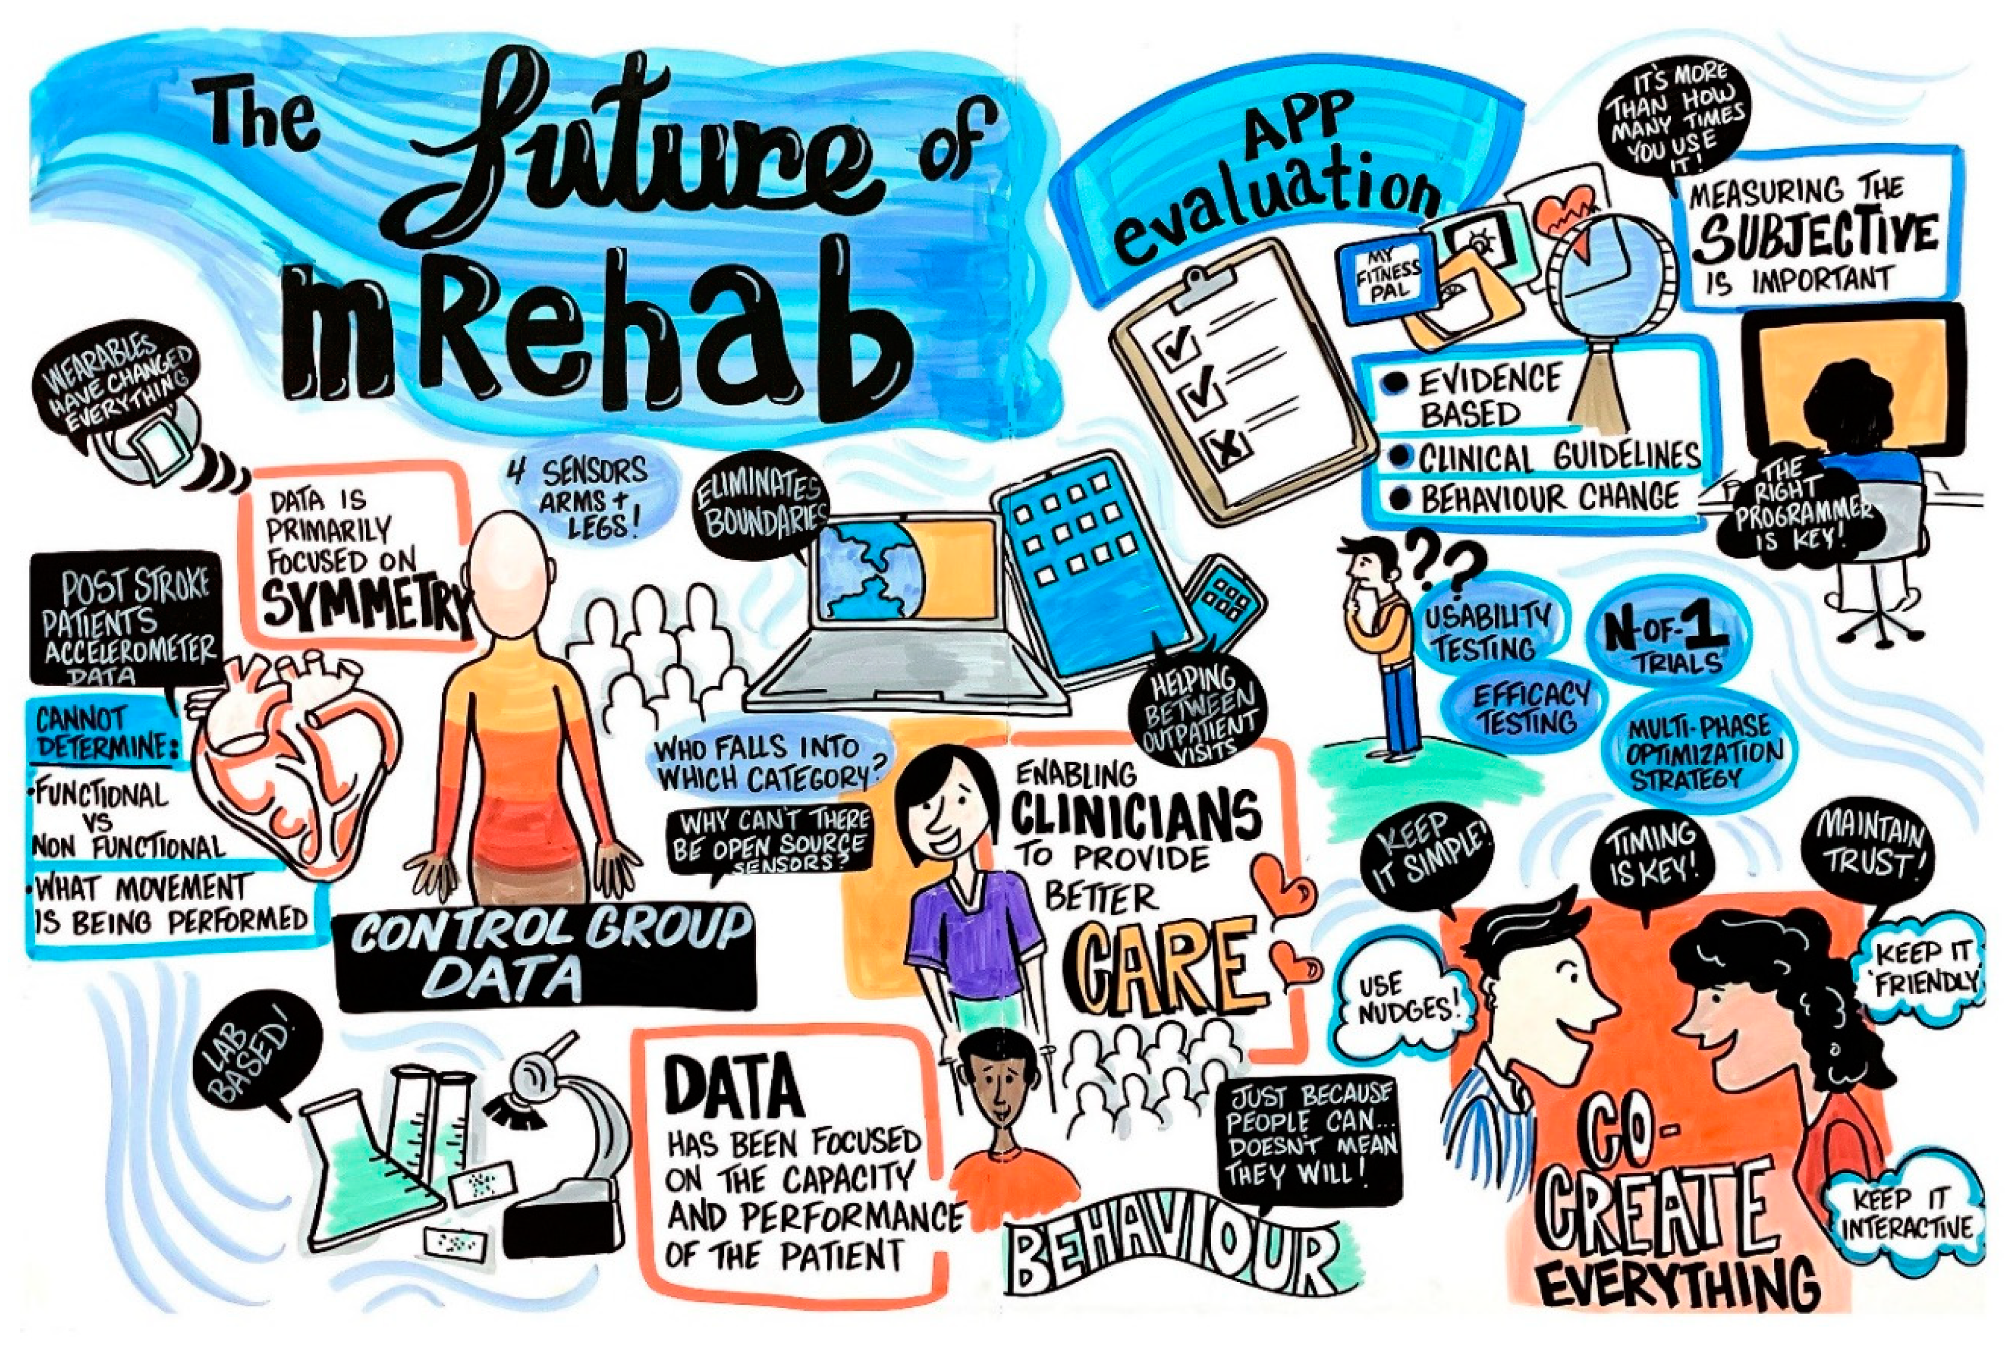 The future of
mRehab
APP
evaluation
IT'S MORE
THAN HOW
MANY TIMES
YOU USE
IT!
MEASURING THE
SUBJECTIVE
IS IMPORTANT
MY
FITNESS
PAL
• EVIDENCE
BASED
• CLINICAL GUIDELINES
• BEHAVIOUR CHANGE
THE
RIGHT
PROGRAMMER
IS KEY!
WEARABLES
HAVE CHANGED
EVERYTHING
DATA IS
PRIMARILY
FOCUSED ON
SYMMETRY
4 SENSORS
ARMS +
LEGS!
ELIMINATES
BOUNDARIES
POST STROKE
PATIENTS
ACCELEROMETER
DATA
CANNOT
DETERMINE:
• FUNCTIONAL
VS
NON FUNCTIONAL
• WHAT MOVEMENT
IS BEING PERFORMED
CONTROL GROUP
DATA
WHO FALLS INTO
WHICH CATEGORY?
WHY CAN'T THERE
BE OPEN SOURCE
SENSORS?
HELPING
BETWEEN
OUTPATIENT
VISITS
ENABLING
CLINICIANS
TO PROVIDE
BETTER
CARE
??
USABILITY
TESTING
N-OF-1
TRIALS
EFFICACY
TESTING
MULTI-PHASE
OPTIMIZATION
STRATEGY
KEEP
IT SIMPLE!
TIMING
IS KEY!
MAINTAIN
TRUST!
USE
NUDGES!
KEEP IT
'FRIENDLY
KEEP IT
INTERACTIVE
CO-
CREATE
EVERYTHING
LAB
BASED!
DATA
HAS BEEN FOCUSED
ON THE CAPACITY
AND PERFORMANCE
OF THE PATIENT
JUST BECAUSE
PEOPLE CAN...
DOESN'T MEAN
THEY WILL!
BEHAVIOUR